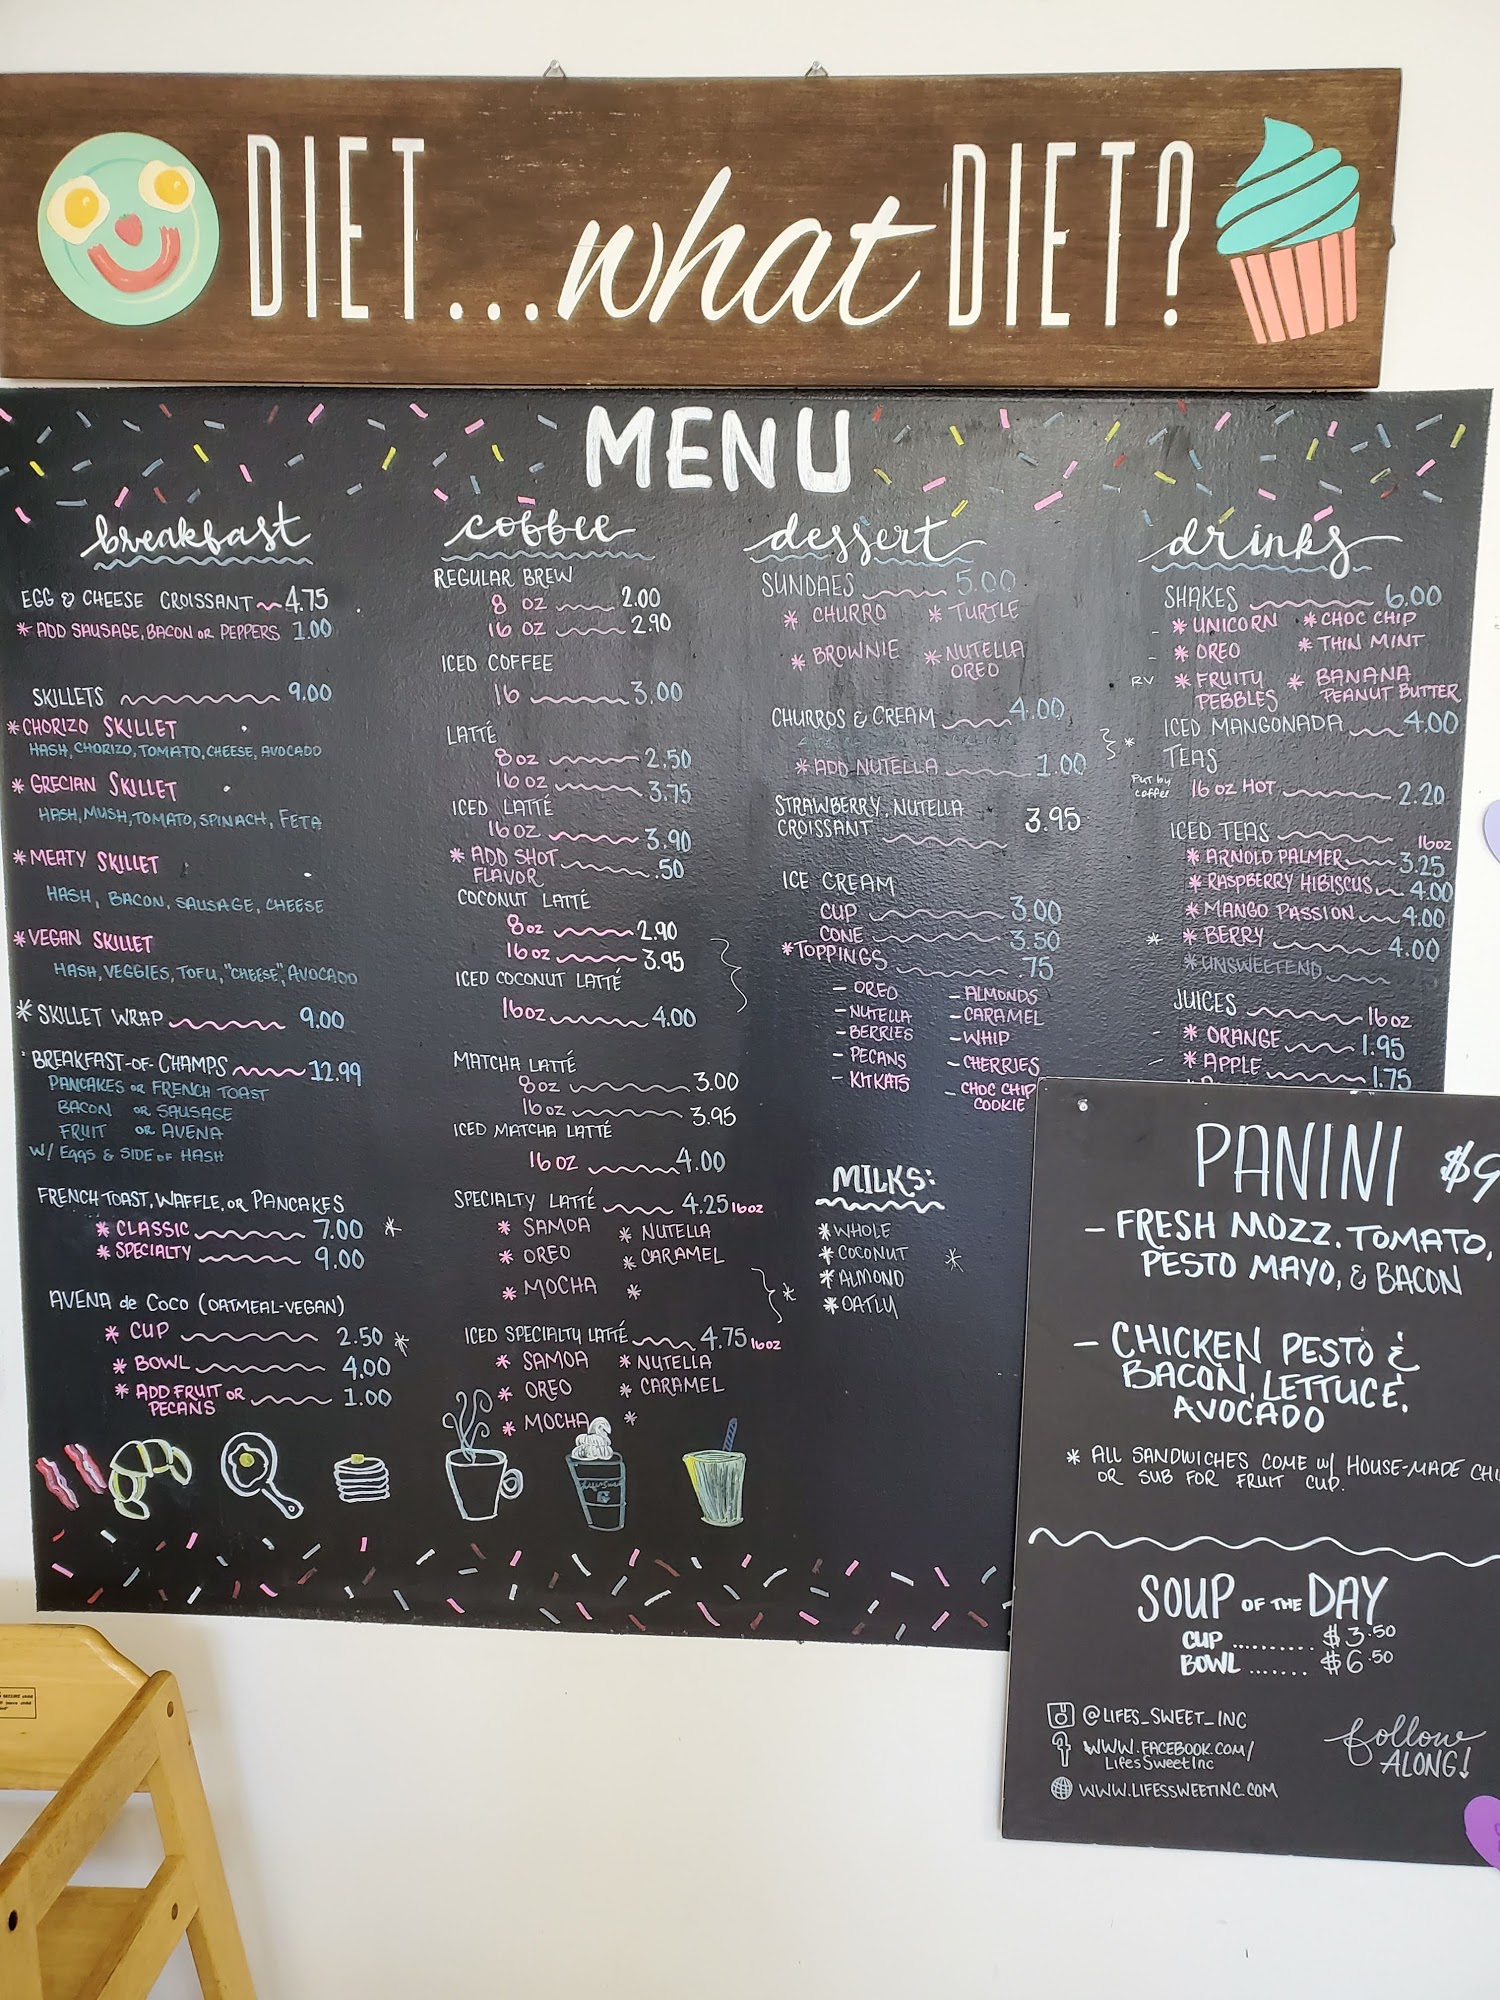 DIET...what DIET?
MENU
breakfast
EGG & CHEESE CROISSANT 4.75
* ADD SAUSAGE, BACON OR PEPPERS 1.00
SKILLETS 9.00
* CHORIZO SKILLET
HASH, CHORIZO, TOMATO, CHEESE, AVOCADO
* GRECIAN SKILLET
HASH, MUSH, TOMATO, SPINACH, FETA
* MEATY SKILLET
HASH, BACON, SAUSAGE, CHEESE
* VEGAN SKILLET
HASH, VEGGIES, TOFU, "CHEESE", AVOCADO
* SKILLET WRAP 9.00
BREAKFAST-OF-CHAMPS 12.99
PANCAKES OR FRENCH TOAST
BACON OR SAUSAGE
FRUIT OR AVENA
W/ Eggs & SIDE OF HASH
FRENCH TOAST, WAFFLE, OR PANCAKES
* CLASSIC 7.00 *
* SPECIALTY 9.00
AVENA de COCO (OATMEAL-VEGAN)
* CUP 2.50 *
* BOWL 4.00
* ADD FRUIT OR 1.00
PECANS
coffee
REGULAR BREW
8 OZ 2.00
16 OZ 2.90
ICED COFFEE
16 3.00
LATTÉ
8 OZ 2.50
16 OZ 3.75
ICED LATTÉ
16 OZ 3.90
* ADD SHOT .50
FLAVOR
COCONUT LATTÉ
8 OZ 2.90
16 OZ 3.95
ICED COCONUT LATTÉ
16 OZ 4.00
MATCHA LATTÉ
8 OZ 3.00
16 OZ 3.95
ICED MATCHA LATTÉ
16 OZ 4.00
SPECIALTY LATTÉ 4.25 16oz
* SAMOA * NUTELLA
* OREO * CARAMEL
* MOCHA *
ICED SPECIALTY LATTÉ 4.75 16oz
* SAMOA * NUTELLA
* OREO * CARAMEL
* MOCHA *
dessert
SUNDAES 5.00
* CHURRO * TURTLE
* BROWNIE * NUTELLA
OREO
CHURROS & CREAM 4.00
* ADD NUTELLA 1.00
STRAWBERRY, NUTELLA
CROISSANT 3.95
ICE CREAM
CUP 3.00
CONE 3.50
* TOPPINGS .75
- OREO - ALMONDS
- NUTELLA - CARAMEL
- BERRIES - WHIP
- PECANS - CHERRIES
- KITKATS - CHOC CHIP
COOKIE
MILKS:
* WHOLE
* COCONUT *
* ALMOND
* OATLY
drinks
SHAKES 6.00
* UNICORN * CHOC CHIP
* OREO * THIN MINT
RV * FRUITY * BANANA
PEBBLES PEANUT BUTTER
ICED MANGONADA 4.00
TEAS
Put by
coffee
16 OZ HOT 2.20
ICED TEAS 16oz
* ARNOLD PALMER 3.25
* RASPBERRY HIBISCUS 4.00
* MANGO PASSION 4.00
* * BERRY 4.00
* UNSWEETEND
JUICES 16oz
* ORANGE 1.95
* APPLE 1.75
PANINI $9
- FRESH MOZZ. TOMATO,
PESTO MAYO, & BACON
- CHICKEN PESTO &
BACON, LETTUCE,
AVOCADO
* ALL SANDWICHES COME W/ HOUSE-MADE
OR SUB FOR FRUIT CUP.
SOUP OF THE DAY
CUP .......... $3.50
BOWL ....... $6.50
@LIFES_SWEET_INC
WWW.FACEBOOK.COM/
LifesSweetInc
WWW.LIFESSWEETINC.COM
follow
ALONG!